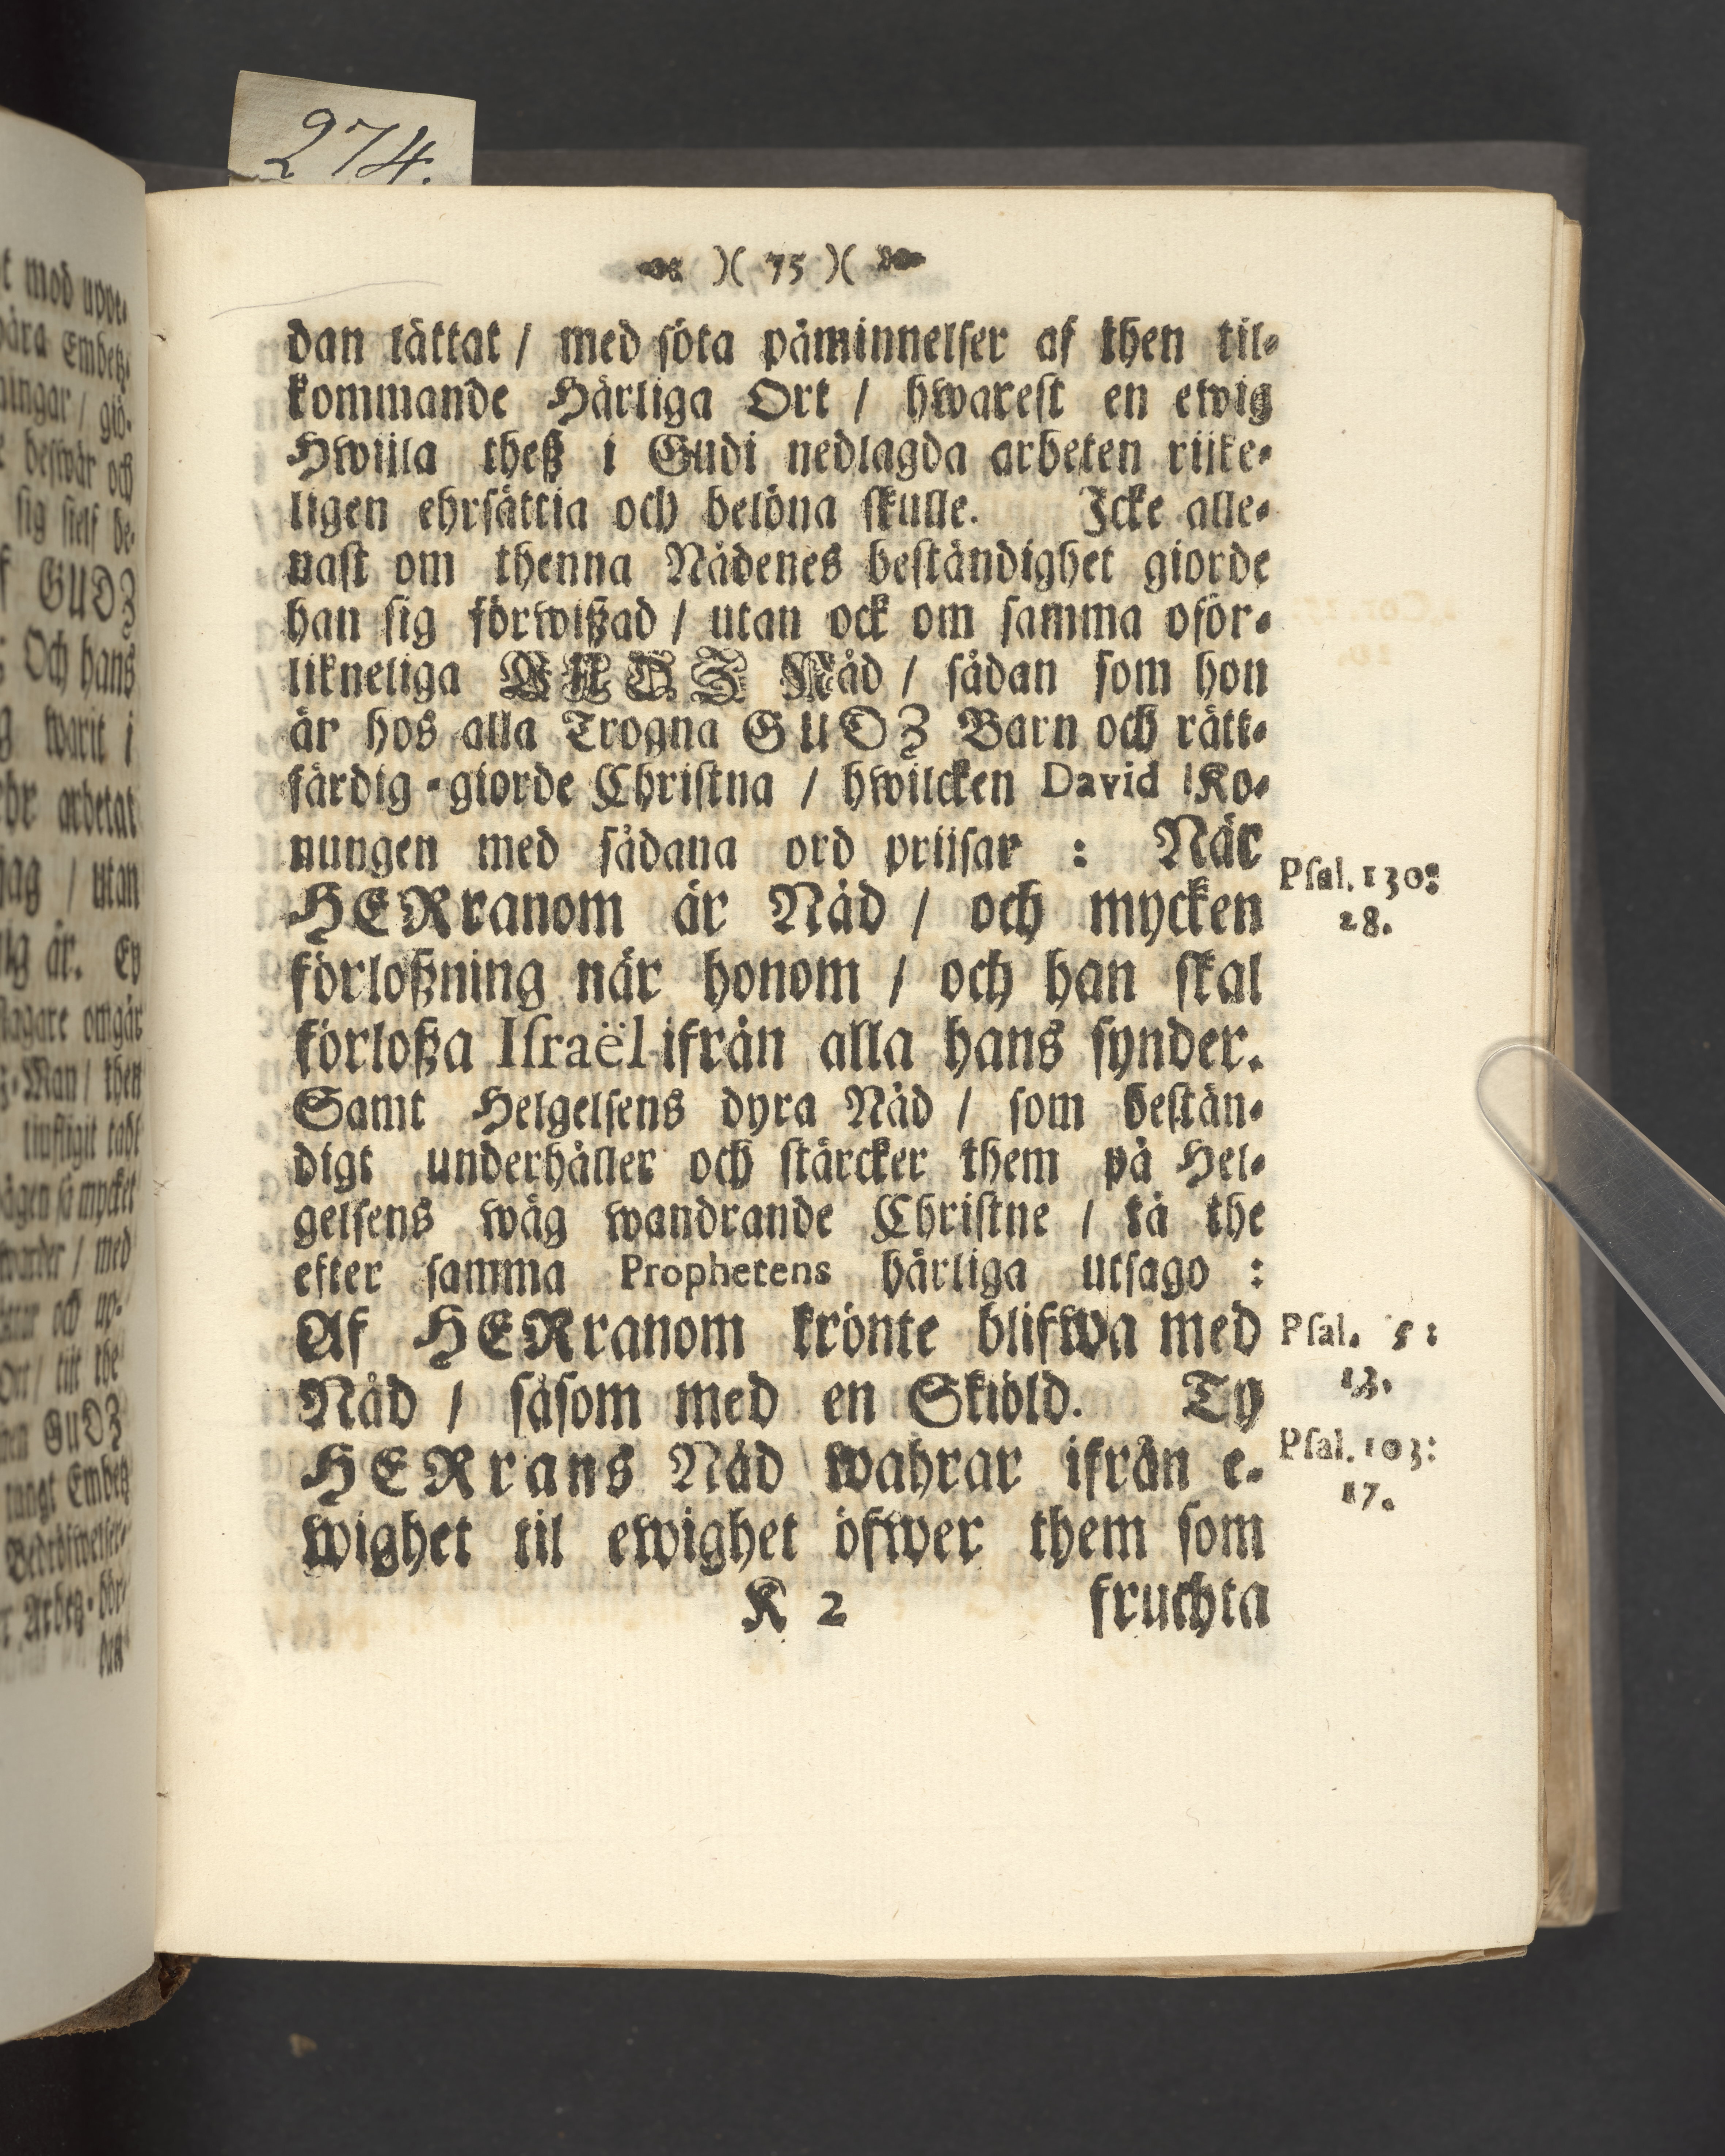 274.
)( 75 )(
dan lättat / med söta påminnelser af then til-
kommande Härliga Ort / hwarest en ewig
Hwijla theß i Gudi nedlagda arbeten rijke-
ligen ehrsättia och belöna skulle. Icke alle-
nast om thenna Nådenes beständighet giorde
han sig förwißad / utan ock om samma oför-
likneliga GUDZ Nåd / sådan som hon
är hos alla Trogna GUDZ Barn och rätt-
färdig-giorde Christna / hwilcken David Ko-
nungen med sådana ord prijsar : När
HERranom är Nåd / och mycken
Psal. 130:
28.
förloßning när honom / och han skal
förloßa Israël ifrån alla hans synder.
Samt Helgelsens dyra Nåd / som bestän-
digt underhåller och stärcker them på Hel-
gelsens wäg wandrande Christne / tå the
efter samma Prophetens härliga utsago :
Af HERranom krönte blifwa med
Psal. 5:
13.
Nåd / såsom med en Skiöld. Ty
HERrans Nåd wahrar ifrån e-
Psal. 103:
17.
wighet til ewighet öfwer them som
K 2 fruchta